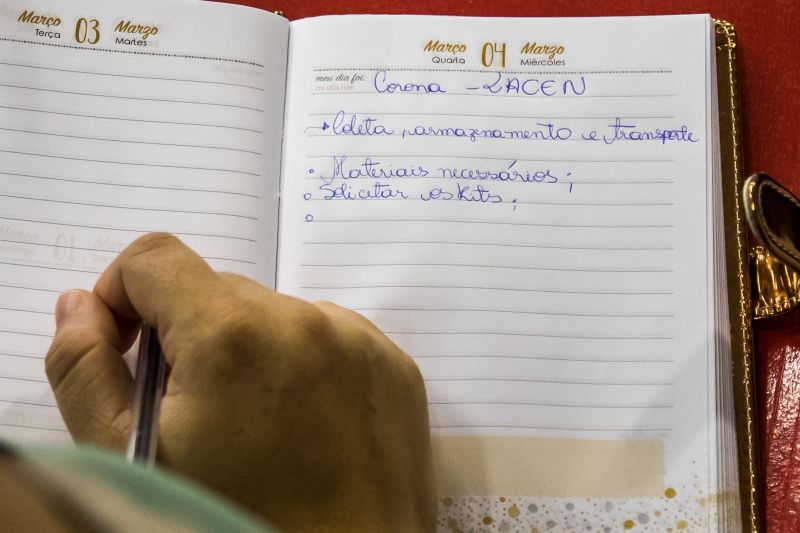 Março 03 Marzo
Terça Martes
Março 04 Marzo
Quarta Miércoles
meu dia foi:
mi día fue:
Corona - LACEN
Coleta, armazenamento e transporte
Materiais necessários;
Solicitar os Kits;
Março 01 Marzo
Domingo